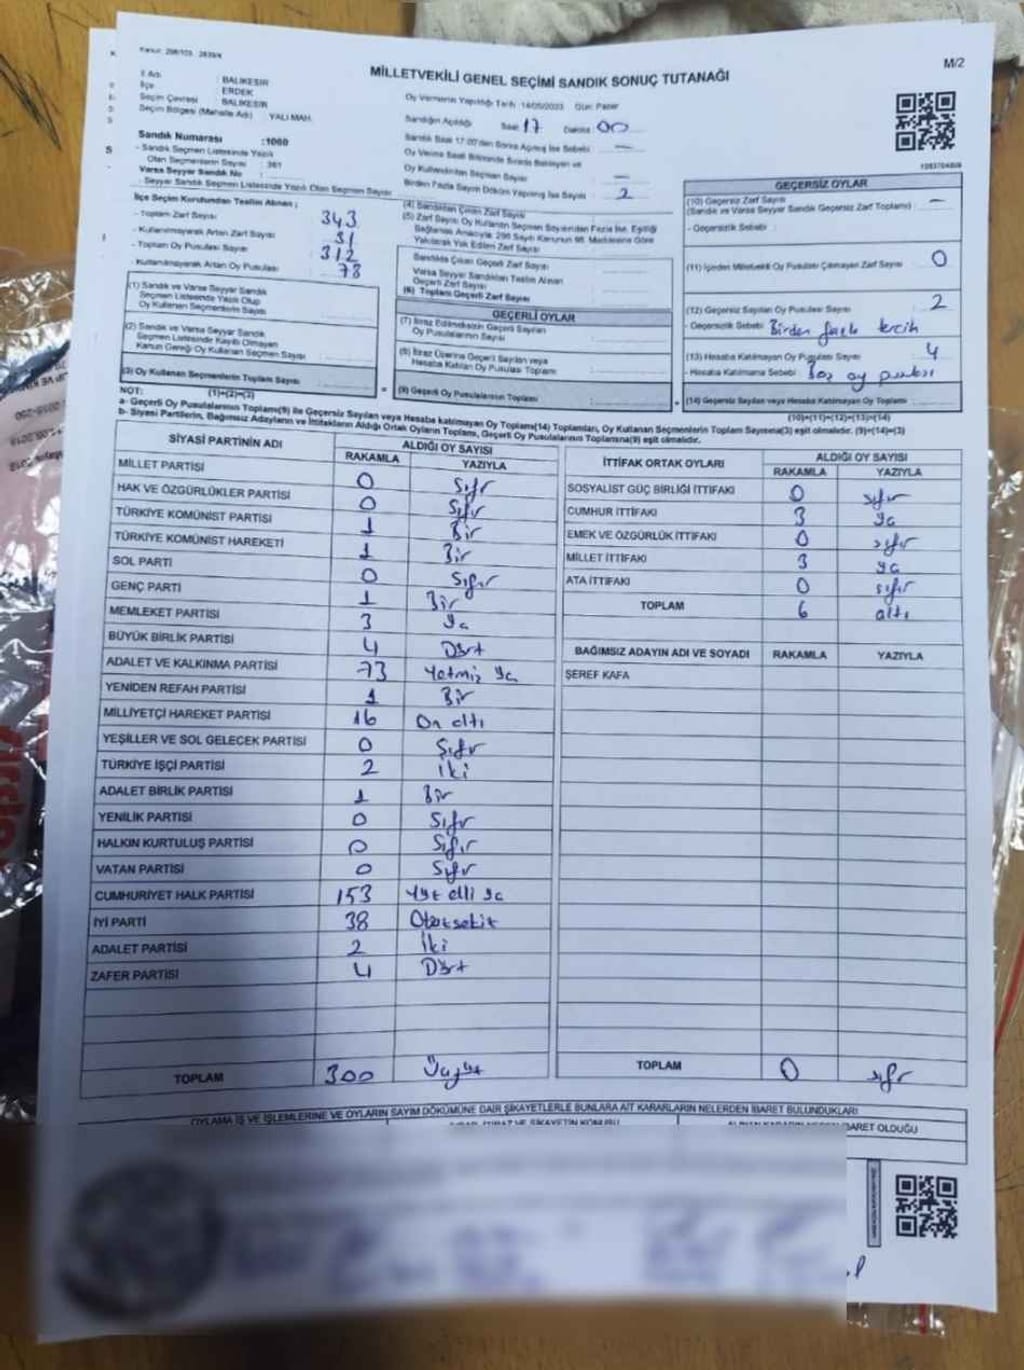 Kanun: 298/105, 2839/4
M/2
MİLLETVEKİLİ GENEL SEÇİMİ SANDIK SONUÇ TUTANAĞI
İl Adı : BALIKESİR
İlçe : ERDEK
Seçim Çevresi : BALIKESİR
Seçim Bölgesi (Mahalle Adı) YALI MAH.
Oy Vermenin Yapıldığı Tarih :14/05/2023 Gün: Pazar
Sandığın Açıldığı Saat 17 Dakika 00
Sandık Saat 17:00'den Sonra Açılmış İse Sebebi —
Sandık Numarası :1060
- Sandık Seçmen Listesinde Yazılı
Olan Seçmenlerin Sayısı : 361
Varsa Seyyar Sandık No :
- Seyyar Sandık Seçmen Listesinde Yazılı Olan Seçmen Sayısı
Oy Verme Saati Bitiminde Sırada Bekleyen ve
Oy Kullandırılan Seçmen Sayısı —
Birden Fazla Sayım Döküm Yapılmış İse Sayısı 2
İlçe Seçim Kurulundan Teslim Alınan :
- Toplam Zarf Sayısı 343
- Kullanılmayarak Artan Zarf Sayısı 31
- Toplam Oy Pusulası Sayısı 312
- Kullanılmayarak Artan Oy Pusulası 78
(1) Sandık ve Varsa Seyyar Sandık
Seçmen Listesinde Yazılı Olup
Oy Kullanan Seçmenlerin Sayısı
(2) Sandık ve Varsa Seyyar Sandık
Seçmen Listesinde Kayıtlı Olmayan
Kanun Gereği Oy Kullanan Seçmen Sayısı
(3) Oy Kullanan Seçmenlerin Toplam Sayısı
(1)+(2)=(3)
(4) Sandıktan Çıkan Zarf Sayısı
(5) Zarf Sayısı Oy Kullanan Seçmen Sayısından Fazla İse, Eşitliği
Sağlamak Amacıyla 298 Sayılı Kanunun 98. Maddesine Göre
Yakılarak Yok Edilen Zarf Sayısı
Sandıkta Çıkan Geçerli Zarf Sayısı
Varsa Seyyar Sandıktan Teslim Alınan
Geçerli Zarf Sayısı
(6) Toplam Geçerli Zarf Sayısı
GEÇERLİ OYLAR
(7) İtiraz Edilmeksizin Geçerli Sayılan
Oy Pusulalarının Sayısı
(8) İtiraz Üzerine Geçerli Sayılan veya
Hesaba Katılan Oy Pusulası Toplamı
(9) Geçerli Oy Pusulalarının Toplamı
GEÇERSİZ OYLAR
(10) Geçersiz Zarf Sayısı —
(Sandık ve Varsa Seyyar Sandık Geçersiz Zarf Toplamı)
- Geçersizlik Sebebi :
(11) İçinden Milletvekili Oy Pusulası Çıkmayan Zarf Sayısı 0
(12) Geçersiz Sayılan Oy Pusulası Sayısı 2
- Geçersizlik Sebebi Birden fazla tercih
(13) Hesaba Katılmayan Oy Pusulası Sayısı 4
- Hesaba Katılmama Sebebi Boş oy pusulası
(14) Geçersiz Sayılan veya Hesaba Katılmayan Oy Toplamı
(10)+(11)+(12)+(13)=(14)
NOT:
a- Geçerli Oy Pusulalarının Toplamı(9) ile Geçersiz Sayılan veya Hesaba katılmayan Oy Toplamı(14) Toplamları, Oy Kullanan Seçmenlerin Toplam Sayısına(3) eşit olmalıdır. (9)+(14)=(3)
b- Siyasi Partilerin, Bağımsız Adayların ve İttifakların Aldığı Ortak Oyların Toplamı, Geçerli Oy Pusulalarının Toplamına(9) eşit olmalıdır.
SİYASİ PARTİNİN ADI ALDIĞI OY SAYISI
RAKAMLA YAZIYLA
MİLLET PARTİSİ 0 Sıfır
HAK VE ÖZGÜRLÜKLER PARTİSİ 0 Sıfır
TÜRKİYE KOMÜNİST PARTİSİ 1 Bir
TÜRKİYE KOMÜNİST HAREKETİ 1 Bir
SOL PARTİ 0 Sıfır
GENÇ PARTİ 1 Bir
MEMLEKET PARTİSİ 3 üç
BÜYÜK BİRLİK PARTİSİ 4 Dört
ADALET VE KALKINMA PARTİSİ 73 Yetmiş üç
YENİDEN REFAH PARTİSİ 1 Bir
MİLLİYETÇİ HAREKET PARTİSİ 16 On altı
YEŞİLLER VE SOL GELECEK PARTİSİ 0 Sıfır
TÜRKİYE İŞÇİ PARTİSİ 2 İki
ADALET BİRLİK PARTİSİ 1 Bir
YENİLİK PARTİSİ 0 Sıfır
HALKIN KURTULUŞ PARTİSİ 0 Sıfır
VATAN PARTİSİ 0 Sıfır
CUMHURİYET HALK PARTİSİ 153 Yüz elli üç
İYİ PARTİ 38 Otuzsekiz
ADALET PARTİSİ 2 İki
ZAFER PARTİSİ 4 Dört
TOPLAM 300 Üçyüz
İTTİFAK ORTAK OYLARI ALDIĞI OY SAYISI
RAKAMLA YAZIYLA
SOSYALİST GÜÇ BİRLİĞİ İTTİFAKI 0 sıfır
CUMHUR İTTİFAKI 3 üç
EMEK VE ÖZGÜRLÜK İTTİFAKI 0 sıfır
MİLLET İTTİFAKI 3 üç
ATA İTTİFAKI 0 sıfır
TOPLAM 6 altı
BAĞIMSIZ ADAYIN ADI VE SOYADI RAKAMLA YAZIYLA
ŞEREF KAFA
TOPLAM 0 sıfır
OYLAMA İŞ VE İŞLEMLERİNE VE OYLARIN SAYIM DÖKÜMÜNE DAİR ŞİKAYETLERLE BUNLARA AİT KARARLARIN NELERDEN İBARET BULUNDUKLARI